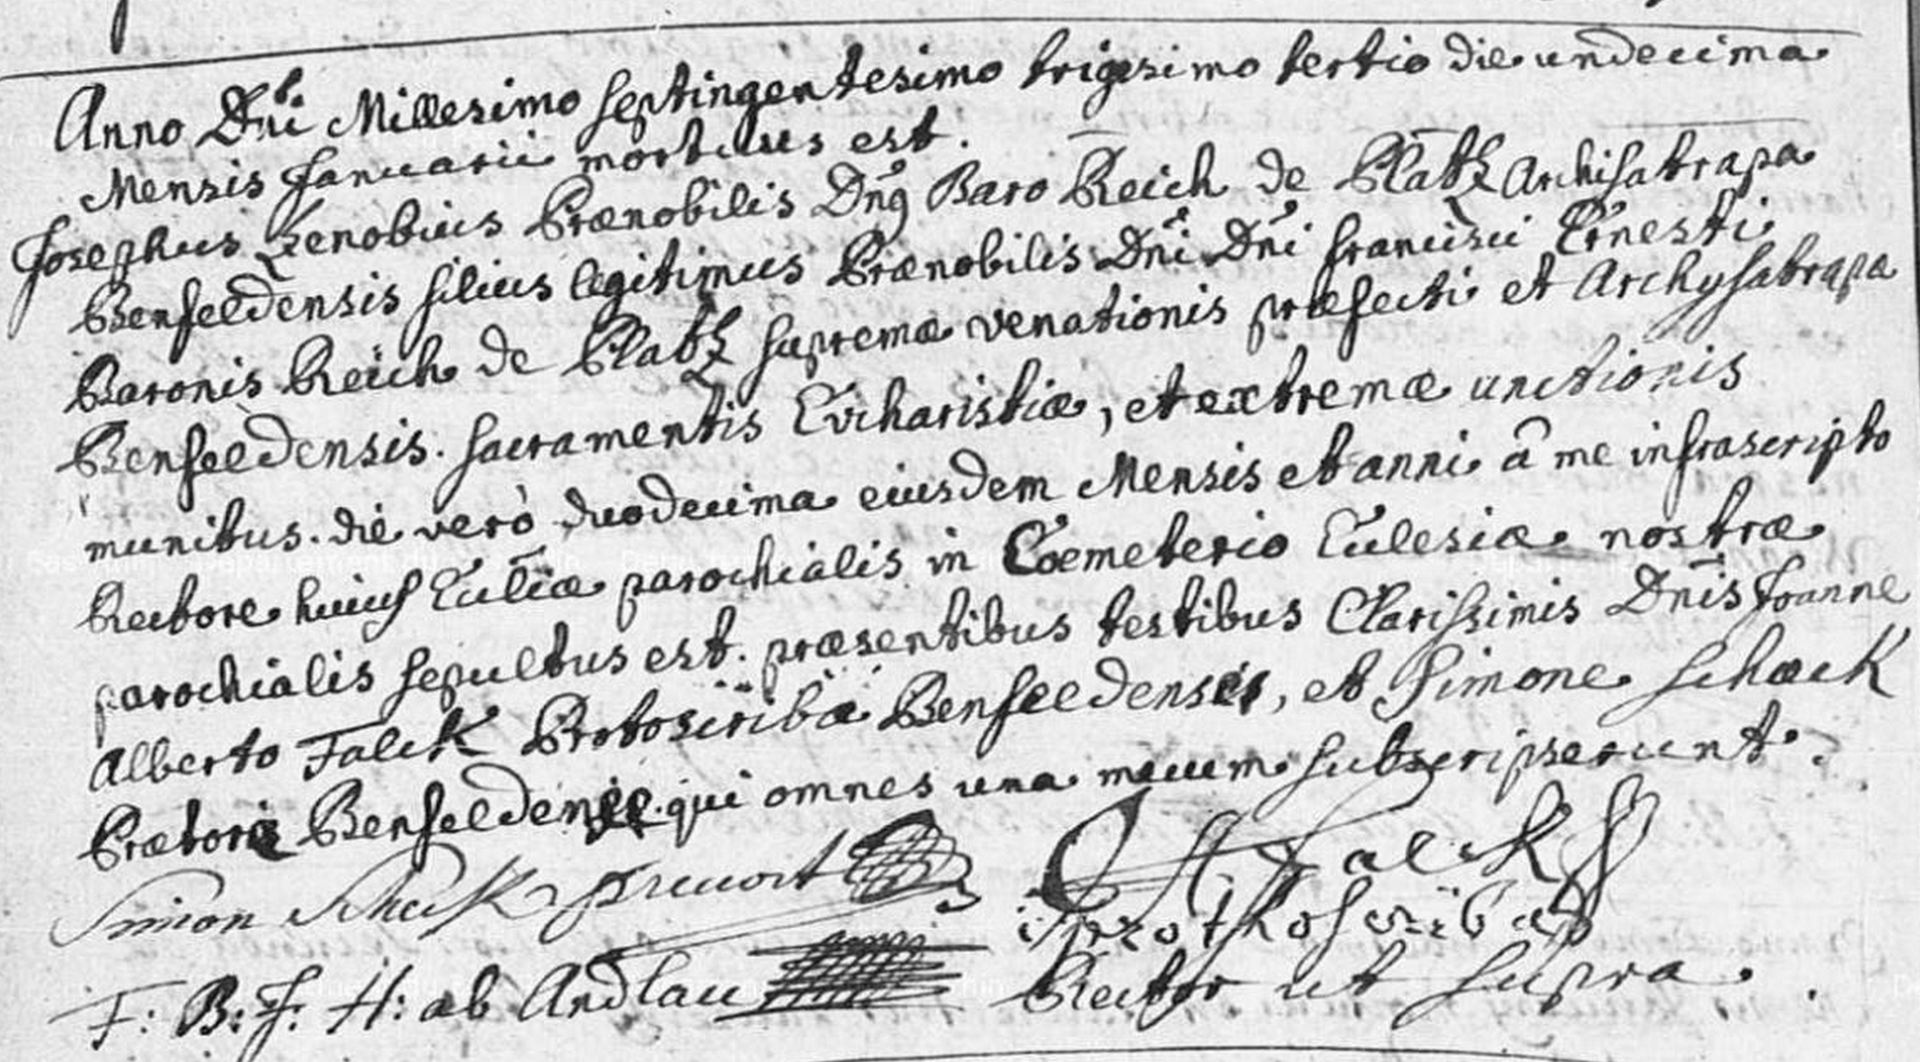 Anno Dni Millesimo septingentesimo trigesimo tertio die undecima
Mensis Januarii mortuus est.
Josephus Zenobius Prænobilis Dnq Baro Reich de Platz Archisatrapa
Benfeldensis filius legitimus Prænobilis Dni Dni francisci Ernesti
Baronis Reich de Platz supremæ venationis præfecti et Archysatrapa
Benfeldensis. sacramentis Eucharistiæ, et extremæ unctionis
munitus. die verò duodecima eiusdem Mensis et anni â me infrascripto
Rectore huius Eccliæ parochialis in Coemeterio Ecclesiæ nostræ
parochialis sepultus est. præsentibus testibus Clarissimis Dnis Joanne
Alberto Falck Protoscriba Benfeldensis, et Simone schæck
Prætore qui omnes una mecum subscripserunt.
Simon prevost Falck
prothoscriba
F: B: J: H: ab Andlau Rector ut supra.